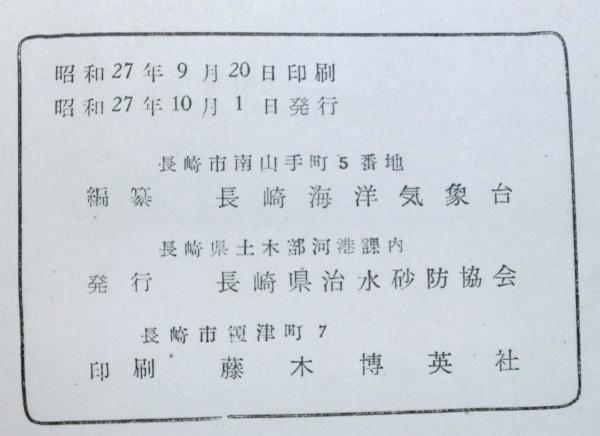 昭和27年9月20日印刷
昭和27年10月1日発行
長崎市南山手町5番地
編纂 長崎海洋気象台
長崎県土木部河港課内
発行 長崎県治水砂防協会
長崎市榎津町7
印刷 藤木博英社